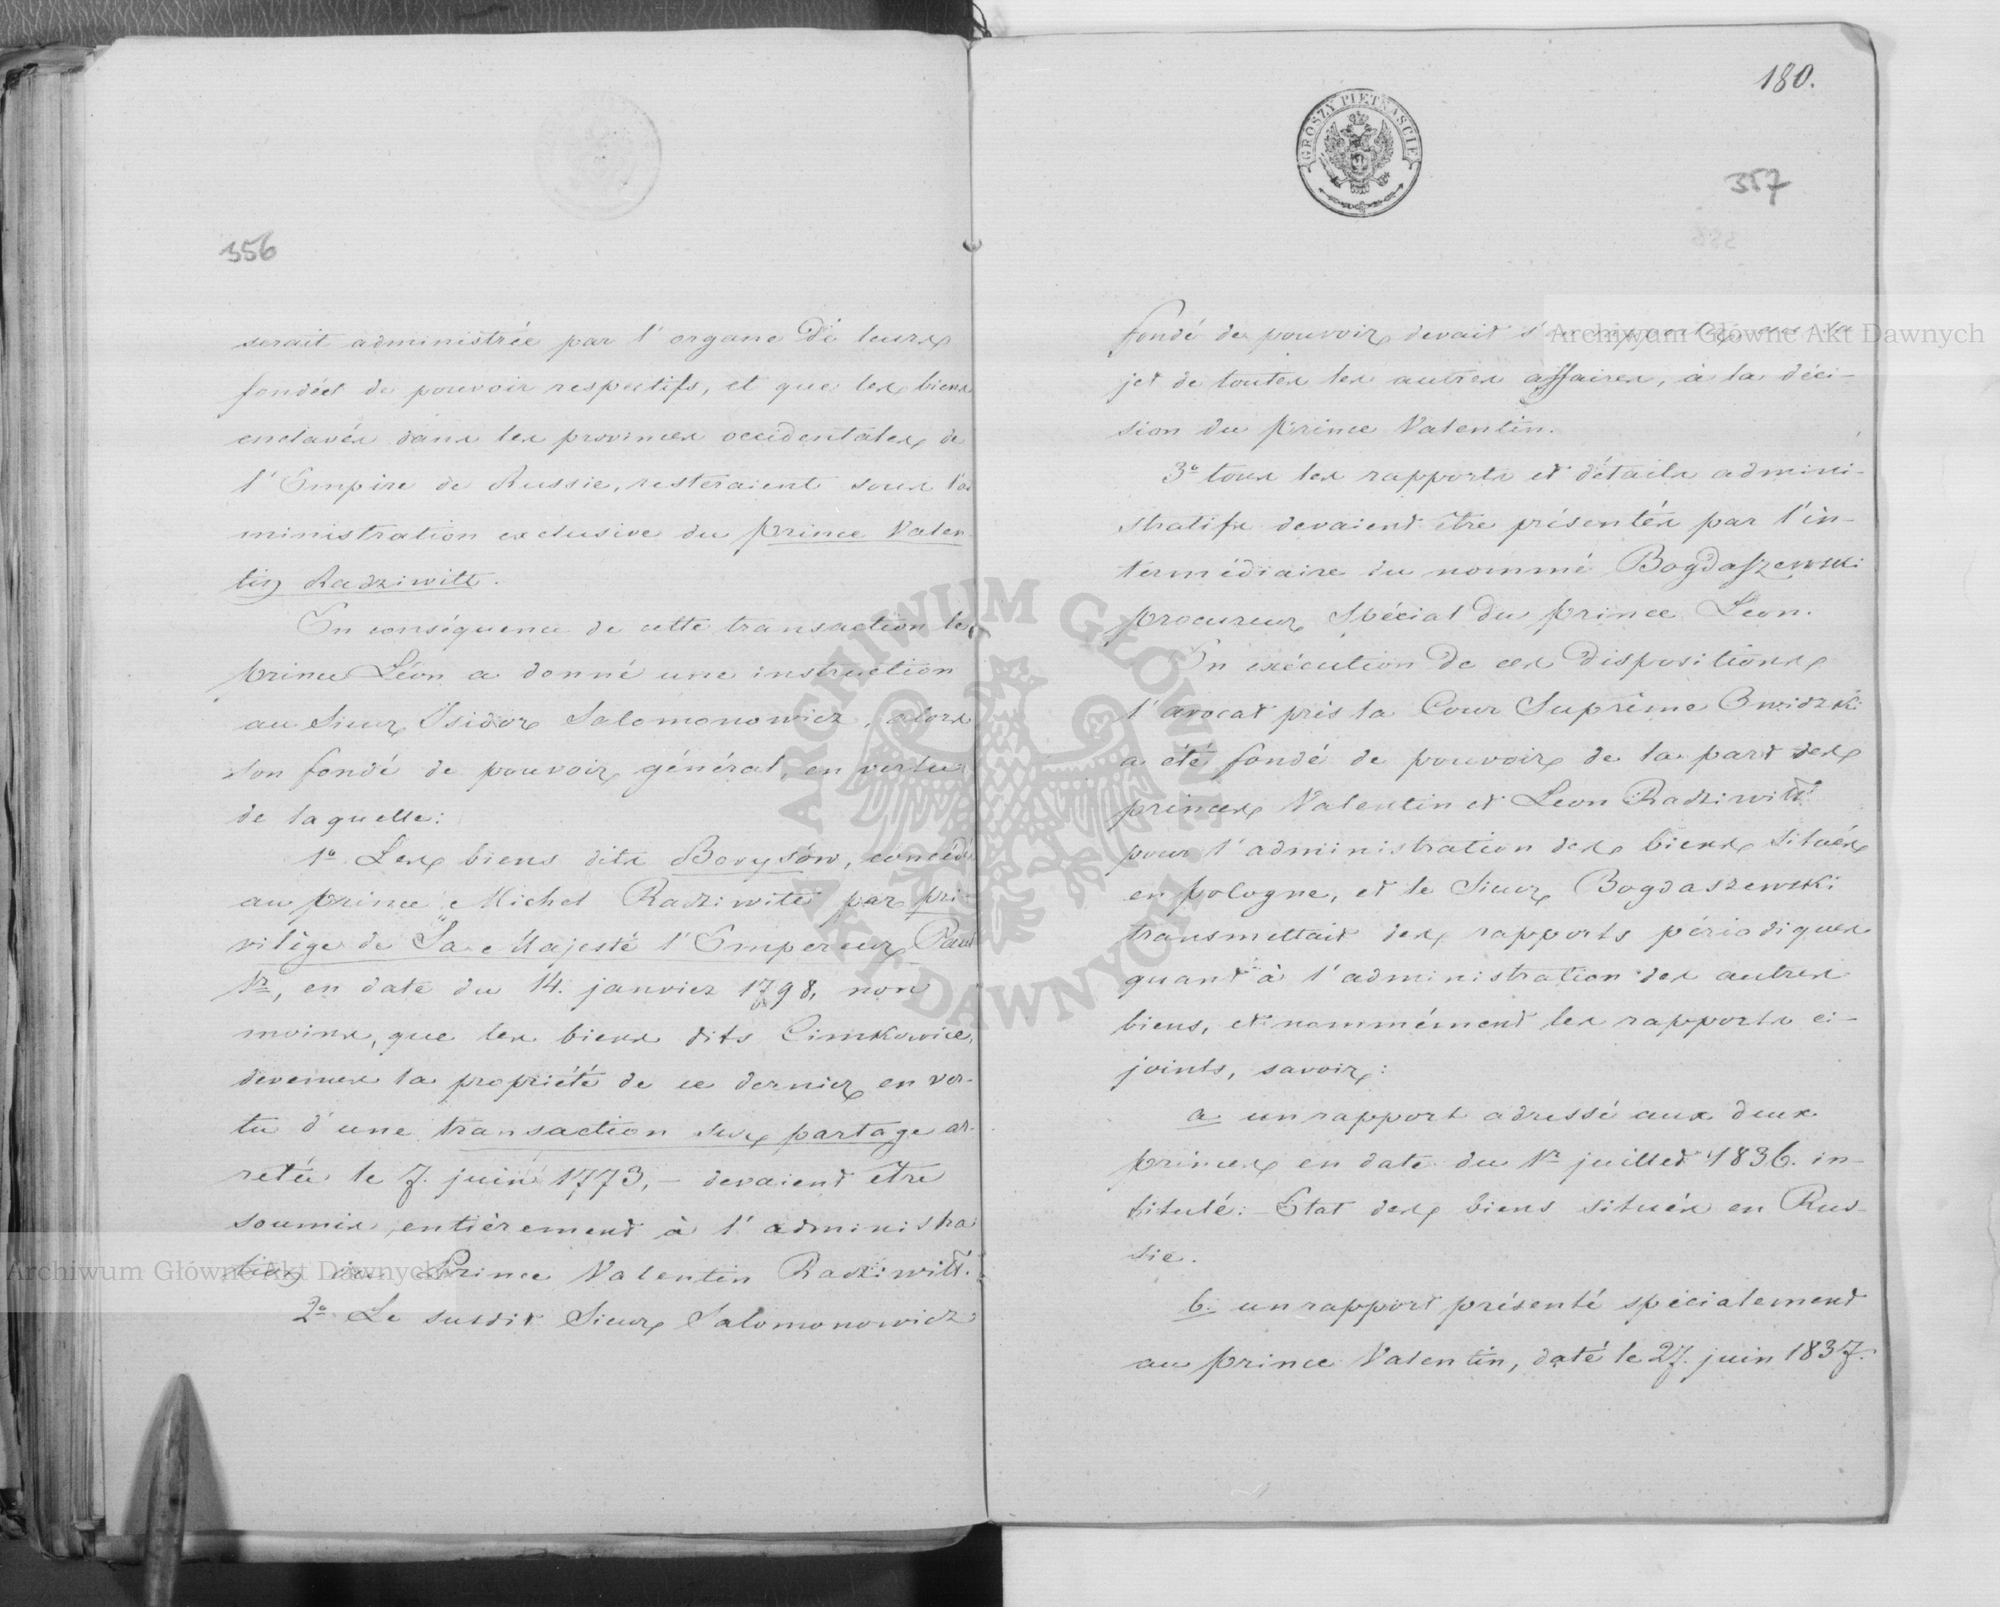 356
serait administrée par l'organe de leurs
fondés de pouvoir respectifs, et que les biens
enclavés dans les provinces occidentales de
l'Empire de Russie, resteraient sous l'ad
ministration exclusive du prince Valen
tin Radziwill.
En conséquence de cette transaction le
prince Léon a donné une instruction
au Sieur Isidor Salomonowicz, alors
son fondé de pouvoir général, en vertu
de laquelle:
1º Les biens dits Borysów, concédés
au prince Michel Radziwill par pri-
vilège de Sa Majesté l'Empereur Paul
1r, en date du 14. janvier 1798, non
moins, que les biens dits Cimkowice,
devenus la propriété de ce dernier en ver-
tu d'une transaction sur partage ar-
retée le 7. juin 1773, – devaient être
soumis entièrement à l'administra
tion du Prince Valentin Radziwill.
2º Le susdit Sieur Salomonowicz
180.
GROSZY PIĘTNAŚCIE
357
fondé de pouvoir devait s'en rapporter au su
jet de toutes les autres affaires, à la déci-
sion du prince Valentin.
3º tous les rapports et détails admini-
stratifs devaient être présentés par l'in-
termédiaire du nommé Bogdaszewski
procureur spécial du prince Leon.
En exécution de ces dispositions
l'avocat près la Cour Suprême Owidzki
a été fondé de pouvoir de la part des
princes Valentin et Leon Radziwill
pour l'administration des biens situés
en pologne, et le Sieur Bogdaszewski
transmettait des rapports périodiques
quant à l'administration des autres
biens, et nommément les rapports ci-
joints, savoir:
a. un rapport adressé aux deux
princes en date du 1r juillet 1836. in-
titulé: Etat des biens situés en Rus-
sie.
b. un rapport présenté spécialement
au prince Valentin, daté le 27. juin 1837.
Archiwum Główne Akt Dawnych
Archiwum Główne Akt Dawnych
ARCHIWUM GŁÓWNE AKT DAWNYCH